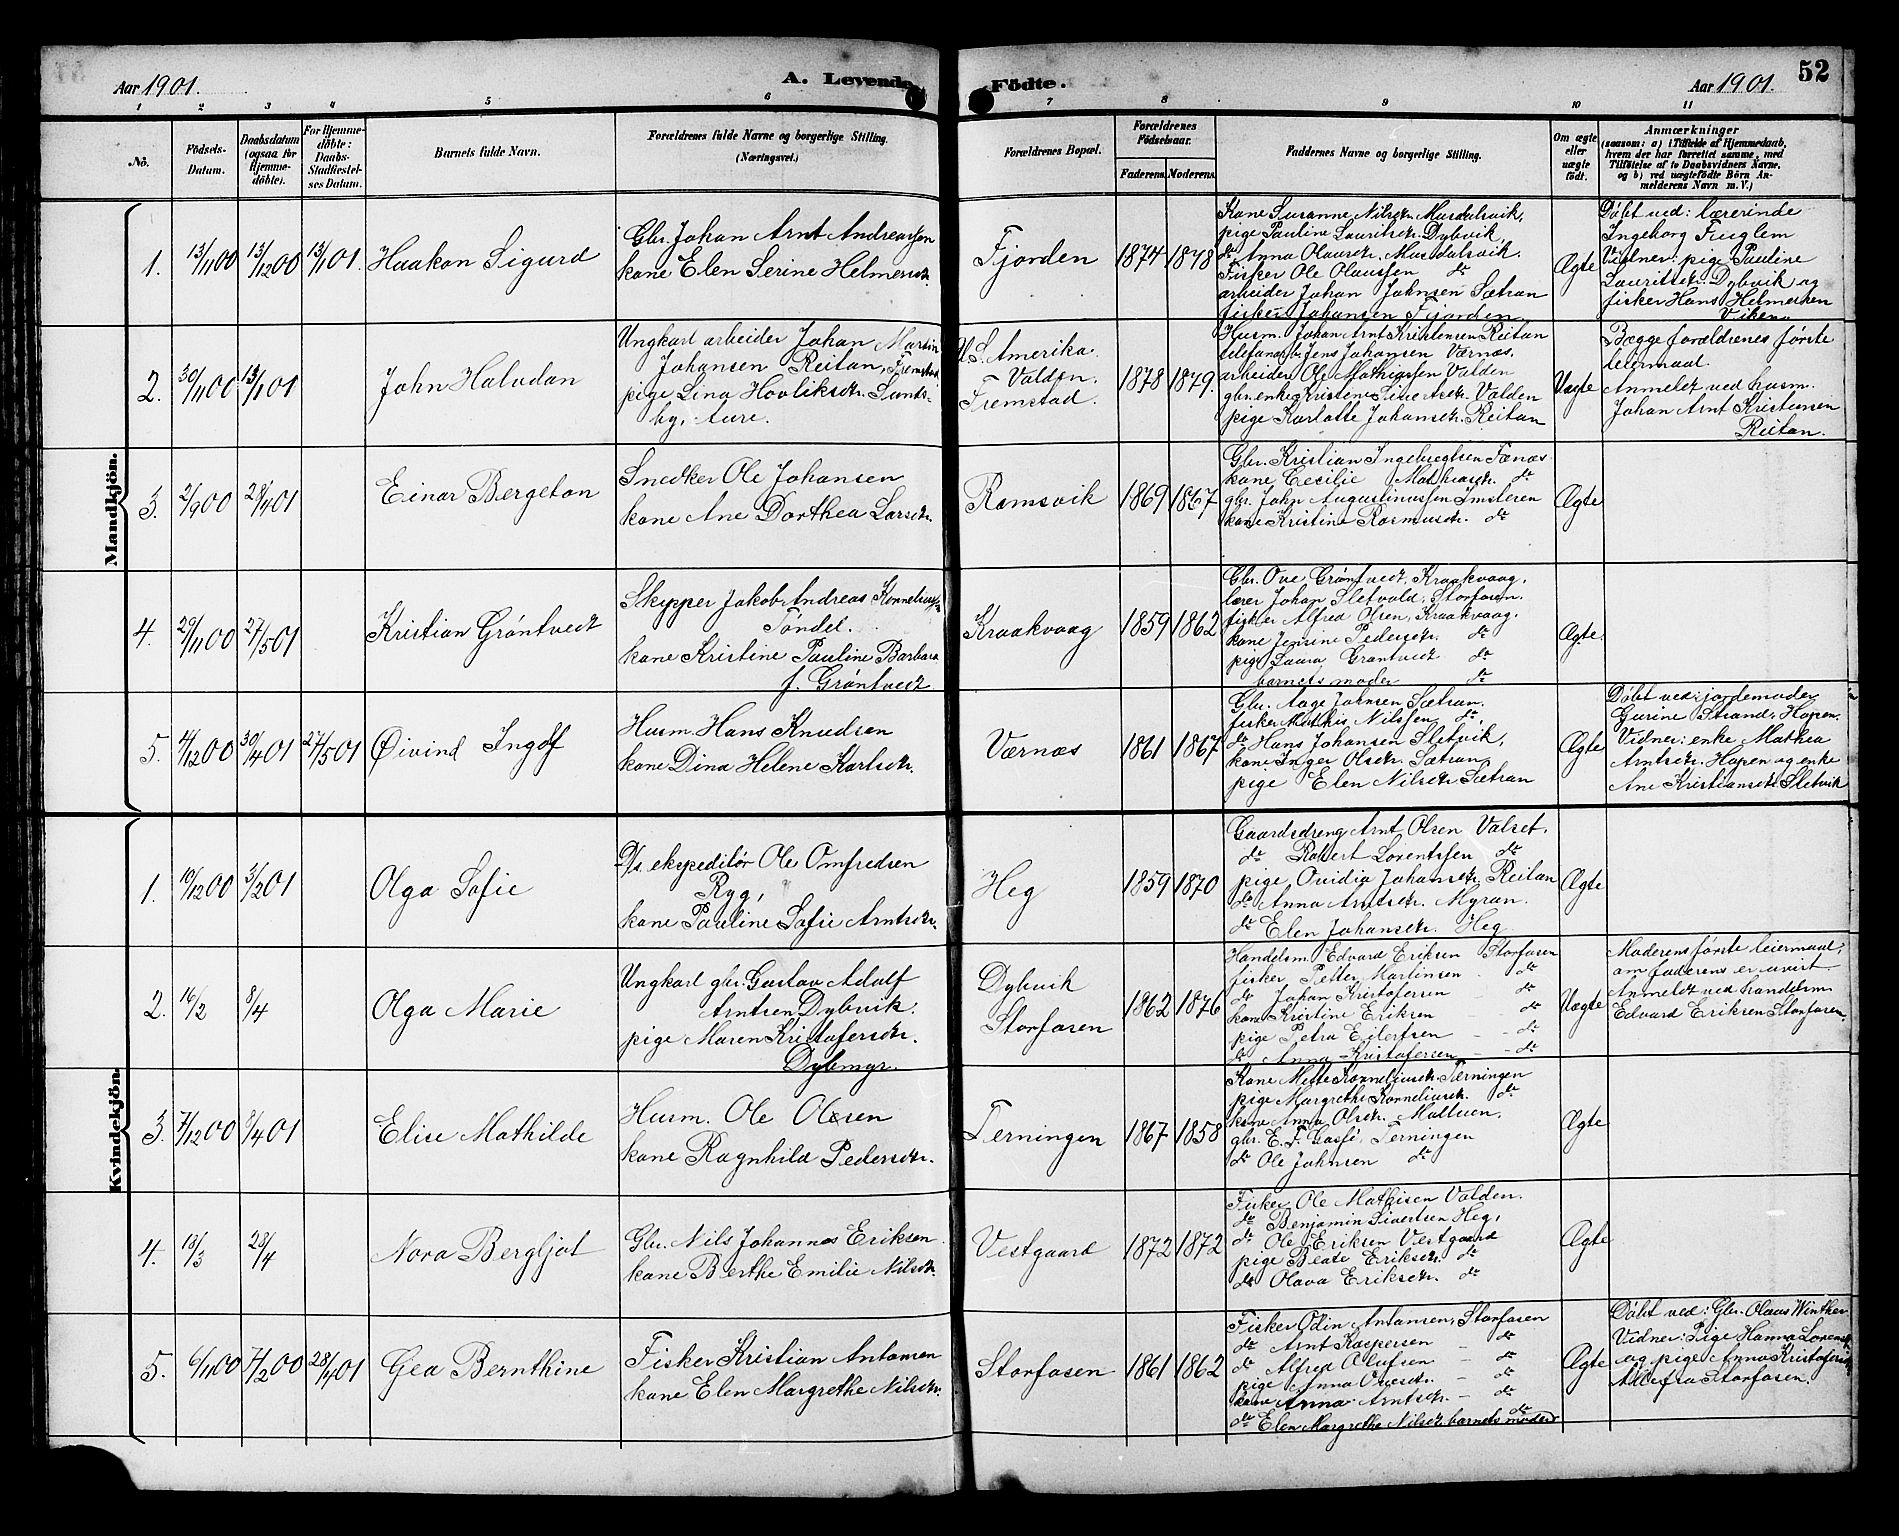 Aar 1901.
A. Levende
Födte.
Aar 1901.
52
1 2 3 4 5 6 7 8 9 10 11
No.
Födsels-
Datum.
Daabsdatum
(ogsaa for
Hjemme-
döbte).
For Hjemme-
döbte:
Daabs-
Stadfæstel-
ses Datum.
Barnets fulde Navn.
Forældrenes fulde Navne og borgerlige Stilling.
(Næringsvei.)
Forældrenes Bopæl.
Forældrenes
Födselsaar.
Faderens.
Moderens.
Faddernes Navne og borgerlige Stilling.
Om ægte
eller
uægte
födt.
Anmærkninger
(saasom: a) i Tilfælde af Hjemmedaab,
hvem der har forrettet samme, med
Tilföielse af to Daabsvidners Navne,
og b) ved uægtefödte Börn An-
melderens Navn m. V.)
Mandkjön.
1.
13/11 00
13/12 00
13/1 01.
Haakon Sigurd
Gbr. Johan Arnt Andreassen
kone Elen Serine Helmersdtr.
Fjorden
1874
1878
Kone Susanne Nilsdtr. Musdalsvik,
pige Pauline Lauritsdtr. Dybvik,
do Anna Olausdtr. Musdalsvik.
Fisker Ole Olaussen do
arbeider Johan Johnsen Sætran
fisker Johansen Fjorden
Ægte
Døbt ved: lærerinde
Ingeborg Fuglem
Vidner: pige Pauline
Lauritsdtr. Dybvik og
fisker Hans Helmersen
Viken.
2.
30/11 00
13/1 01
John Halvdan
Ungkarl arbeider Johan Martin
Johansen Reitan, Fremstad
pige Lina Hovliksdtr. Sunds-
by, Aure.
U.S. Amerika.
Valden.
Fremstad.
1878
1879.
Husm. Johan Arnt Kristensen Reitan
telefonarb. Jens Johansen Værnes.
arbeider Ole Mathiassen Valden
gbr.enke Kristine Sivertsdtr. Valden
pige Karlotte Johansdtr. Reitan
Uægte
Begge forældrenes første
leiermaal.
Anmeldt ved husm.
Johan Arnt Kristensen
Reitan.
3.
2/9 00
28/4 01
Einar Bergeton
Snedker Ole Johansen
kone Ane Dorthea Larsdtr.
Ramsvik
1869
1867
Gbr. Kristian Ingebregtsen Fænes
kone Cecilie Mathiasdtr. do
gbr. John Augustinussen Imsteren
kone Kristine Rasmusdtr. do
Ægte
4.
29/11 00
27/5 01
Kristian Grøntvedt
Skipper Jakob Andreas Kornelius[sen]
Tøndel.
kone Kristine Pauline Barbara
f. Grøntvedt
Kraakvaag
1859
1862
Gbr. Ove Grøntvedt, Kraakvaag.
lærer Johan Sletvold, Storfosen.
fisker Alfred Olsen, Kraakvaag.
kone Jensine Pedersdtr. do
pige Laura Grøntvedt do
barnets moder do
Ægte.
5.
4/12 00
30/4 01
27/5 01
Øivind Ingolf
Husm. Hans Knudsen
kone Dina Helene Karlsdtr.
Værnes
1861
1867
Gbr. Aage Johnsen Sætran.
fisker Mathis Nilssen do,
do Hans Johansen Sletvik,
kone Inger Olsdtr. Sætran,
pige Elen Nilsdtr. Sætran
Ægte
Døbt ved: jordemoder
Gurine Strand, Hopen.
Vidner: enke Mathea
Arntsdtr. Hopen og enke
Ane Kristiansdtr. Sletvik
Kvindekjön.
1.
10/12 00
3/2 01
Olga Sofie
D/s. ekspeditør Ole Omfredsen
Ryg,
kone Pauline Sofie Arntsdtr.
Heg
1859
1870
Gaardsdreng Arnt Olsen Valset.
do Robert Lorentssen do
pige Ovidia Johansdtr. Reitan
do Anna Arntsdtr. Myran.
do Elen Johansdtr. Heg.
Ægte
2.
16/2
8/4
Olga Marie
Ungkarl gbr. Gustav Adolf
Arntsen Dybvik.
pige Maren Kristofersdtr.
Dybmyr.
Dybvik
Storfosen
1862
1876
Handelsm. Edvard Eriksen Storfosen
fisker Petter Martinsen do
do Johan Kristofersen do
kone Kristine Eriksen - do
pige Petra Eilertsen - do
do Anna Kristofersen - do
Uægte
Moderens første leiermaal,
om faderens er uvist
Anmeldt ved handelsm
Edvard Eriksen Storfosen.
3.
7/12 00
8/4 01
Elise Mathilde
Husm. Ole Olsen
kone Ragnhild Pedersdtr.
Terningen
1867
1858
Kone Mette Korneliusdtr. Terningen
pige Margrethe Korneliusdtr. do
kone Anna Olsdtr. Mattuen,
gbr. E. F. Gasfe, Terningen
do Ole Johnsen do
Ægte
4.
13/3
28/4
Nora Bergljot
Gbr. Nils Johannes Eriksen
kone Berthe Emilie Nilsdtr.
Vestgaard
1872
1872
Fisker Ole Mathisen Valden.
do Benjamin Sivertsen Heg,
do Ole Eriksen Vestgaard
pige Beate Eriksdtr. do
do Olava Eriksdtr. do
Ægte
5.
6/11 00
7/12 00
28/4 01
Gea Bernthine
Fisker Kristian Antonsen
kone Elen Margrethe Nilsdtr.
Storfosen
1861
1862
Fisker Odin Antonsen, Storfosen
do Arnt Kaspersen - do
do Alfred Olufsen - do
pige Anna Ovesdtr. - do
kone Anna Arntsdtr. - do
do Elen Margrethe Nilsdtr. barnets moder do
Ægte
Døbt ved: Gbr. Olaus Winther
Vidner: Pige Hanna Lorensdtr
og pige Anna Kristofersdtr
Alle fra Storfosen.